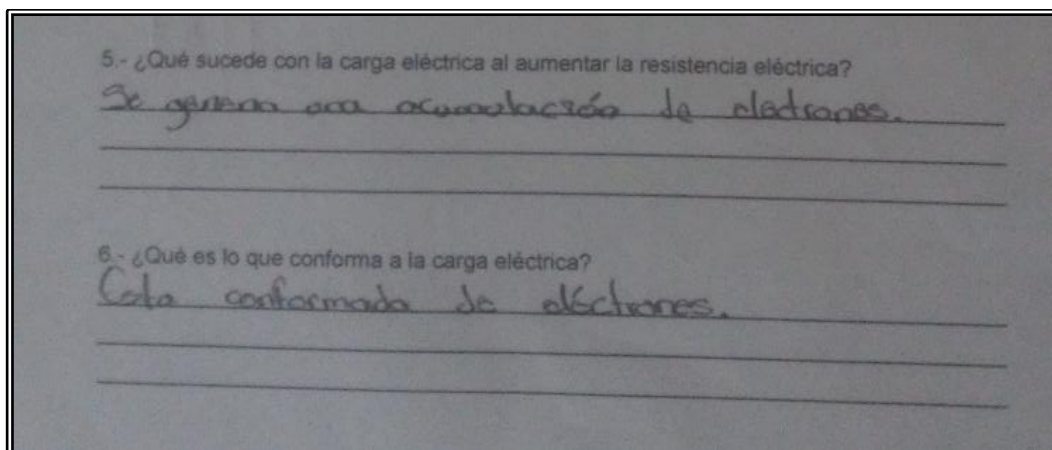 5.- ¿Qué sucede con la carga eléctrica al aumentar la resistencia eléctrica?
Se genera una acumulación de electrones.
6.- ¿Qué es lo que conforma a la carga eléctrica?
Esta conformada de eléctrones.